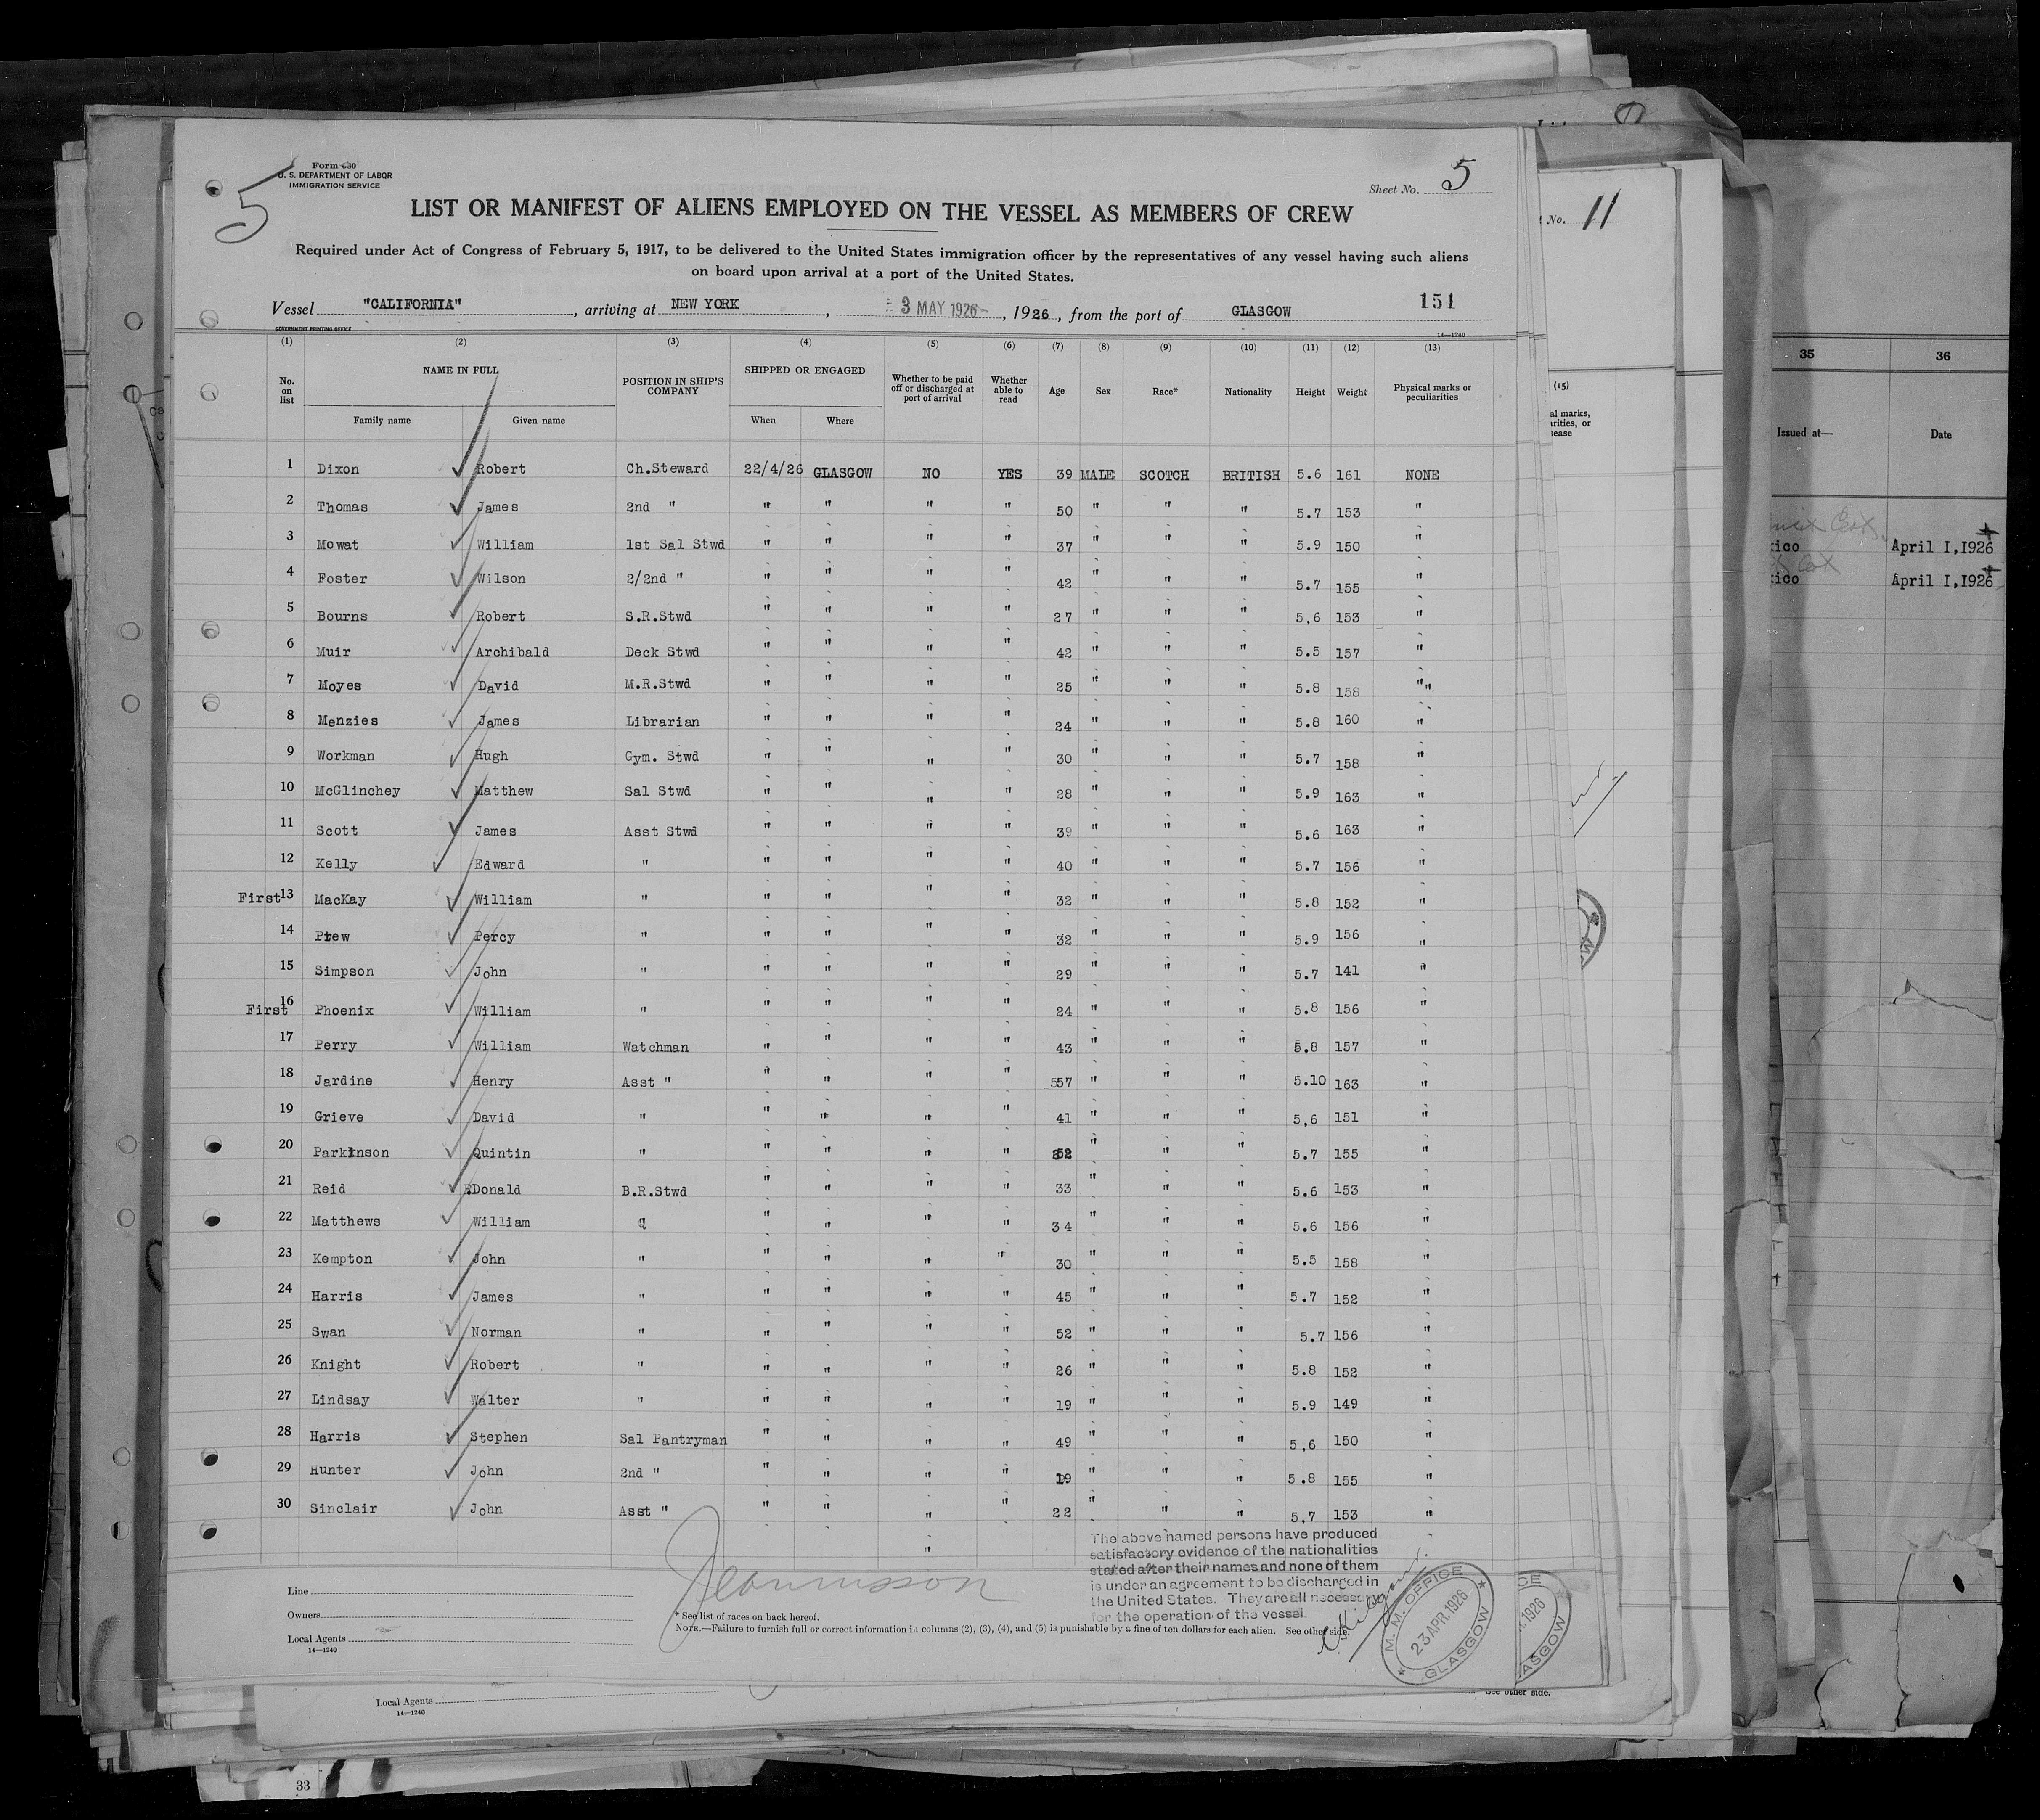 5
Form 680
U. S. DEPARTMENT OF LABOR
IMMIGRATION SERVICE
Sheet No. 5
LIST OR MANIFEST OF ALIENS EMPLOYED ON THE VESSEL AS MEMBERS OF CREW
Required under Act of Congress of February 5, 1917, to be delivered to the United States immigration officer by the representatives of any vessel having such aliens
on board upon arrival at a port of the United States.
151
Vessel "CALIFORNIA", arriving at NEW YORK, 3 MAY 1926, 1926, from the port of GLASGOW
GOVERNMENT PRINTING OFFICE 14—1240
(1) (2) (3) (4) (5) (6) (7) (8) (9) (10) (11) (12) (13)
No. on list NAME IN FULL POSITION IN SHIP'S COMPANY SHIPPED OR ENGAGED Whether to be paid off or discharged at port of arrival Whether able to read Age Sex Race* Nationality Height Weight Physical marks or peculiarities
Family name Given name When Where
1 Dixon Robert Ch.Steward 22/4/26 GLASGOW NO YES 39 MALE SCOTCH BRITISH 5.6 161 NONE
2 Thomas James 2nd " " " " " 50 " " " 5.7 153 "
3 Mowat William 1st Sal Stwd " " " " 37 " " " 5.9 150 "
4 Foster Wilson 2/2nd " " " " " 42 " " " 5.7 155 "
5 Bourns Robert S.R.Stwd " " " " 27 " " " 5,6 153 "
6 Muir Archibald Deck Stwd " " " " 42 " " " 5.5 157 "
7 Moyes David M.R.Stwd " " " " 25 " " " 5.8 158 ""
8 Menzies James Librarian " " " " 24 " " " 5.8 160 "
9 Workman Hugh Gym. Stwd " " " " 30 " " " 5.7 158 "
10 McGlinchey Matthew Sal Stwd " " " " 28 " " " 5.9 163 "
11 Scott James Asst Stwd " " " " 39 " " " 5.6 163 "
12 Kelly Edward " " " " " 40 " " " 5.7 156 "
First 13 MacKay William " " " " " 32 " " " 5.8 152 "
14 Prew Percy " " " " " 32 " " " 5.9 156 "
15 Simpson John " " " " " 29 " " " 5.7 141 "
First 16 Phoenix William " " " " " 24 " " " 5.8 156 "
17 Perry William Watchman " " " " 43 " " " 5.8 157 "
18 Jardine Henry Asst " " " " " 557 " " " 5.10 163 "
19 Grieve David " " " " " 41 " " " 5,6 151 "
20 Parkinson Quintin " " " " " " " " 5.7 155 "
21 Reid Donald B.R.Stwd " " " " 33 " " " 5.6 153 "
22 Matthews William " " " " " 34 " " " 5.6 156 "
23 Kempton John " " " " " 30 " " " 5.5 158 "
24 Harris James " " " " " 45 " " " 5.7 152 "
25 Swan Norman " " " " " 52 " " " 5.7 156 "
26 Knight Robert " " " " " 26 " " " 5.8 152 "
27 Lindsay Walter " " " " " 19 " " " 5.9 149 "
28 Harris Stephen Sal Pantryman " " " " 49 " " " 5,6 150 "
29 Hunter John 2nd " " " " " 19 " " " 5.8 155 "
30 Sinclair John Asst " " " " " 22 " " " 5.7 153 "
"
The above named persons have produced
satisfactory evidence of the nationalities
stated after their names and none of them
is under an agreement to be discharged in
the United States. They are all necessary
for the operation of the vessel.
M. M. OFFICE
23 APR. 1926
GLASGOW
Line
Owners
Local Agents
14—1240
* See list of races on back hereof.
NOTE.—Failure to furnish full or correct information in columns (2), (3), (4), and (5) is punishable by a fine of ten dollars for each alien. See other side.
Local Agents
14—1240
See other side.
33
No. 11
(15)
al marks,
arities, or
sease
35 36
Issued at— Date
xico April I,1926
xico April I,1926
CE
1926
ASGOW